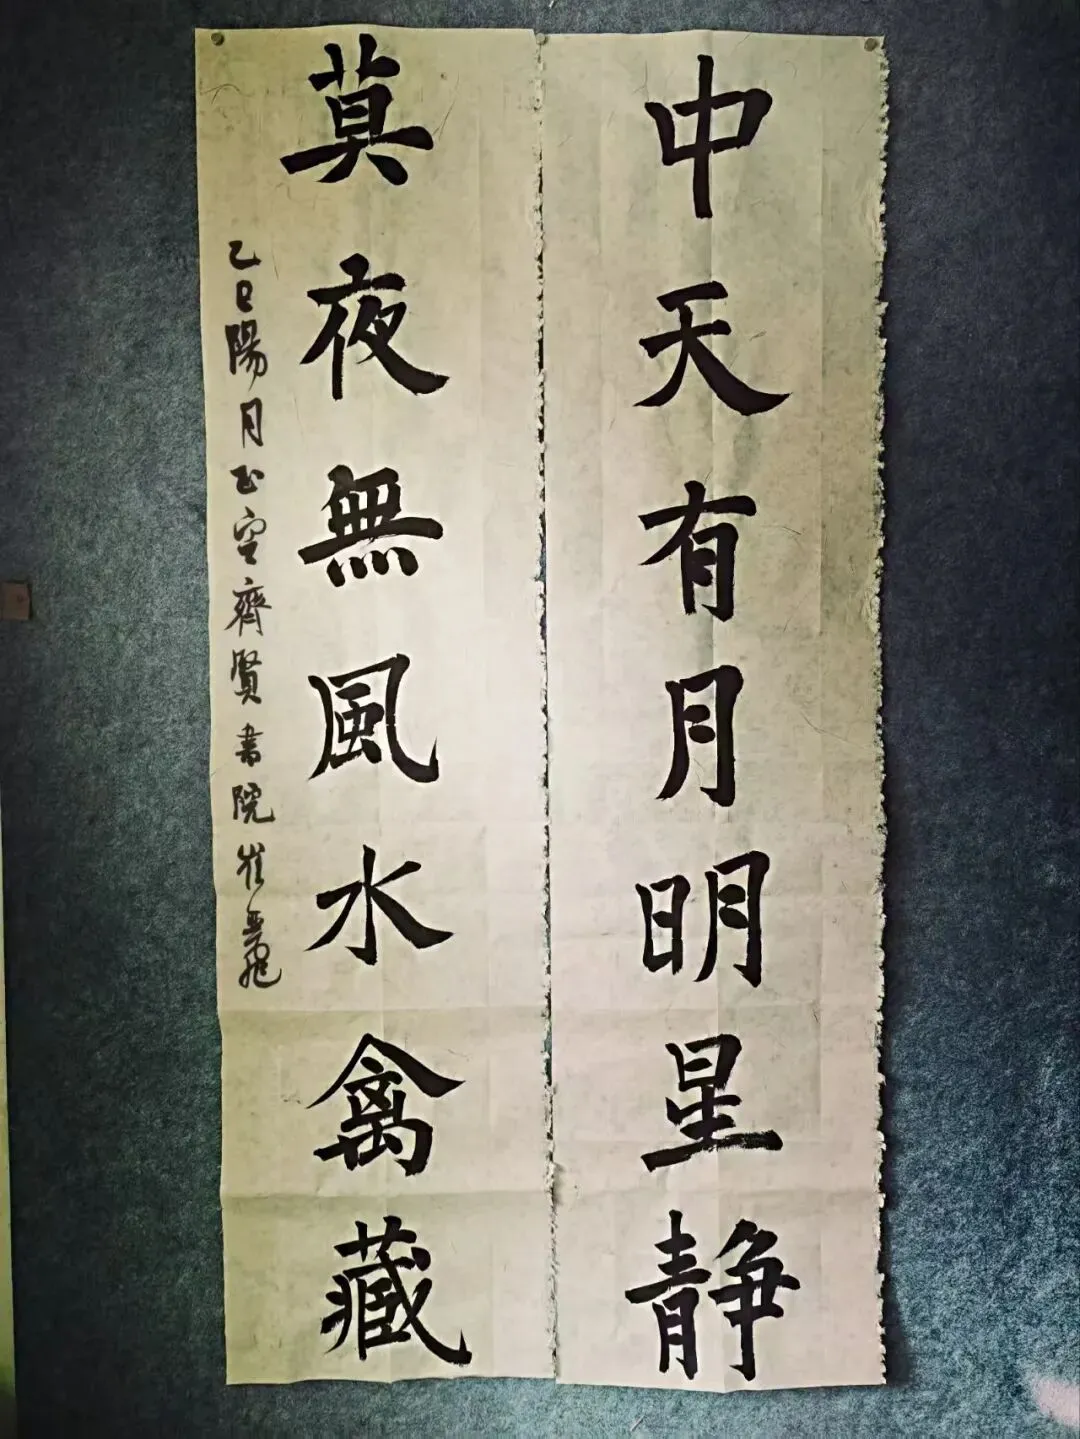 中天有月明星静
莫夜無風水禽藏
乙巳陽月於空齊賢書院崔